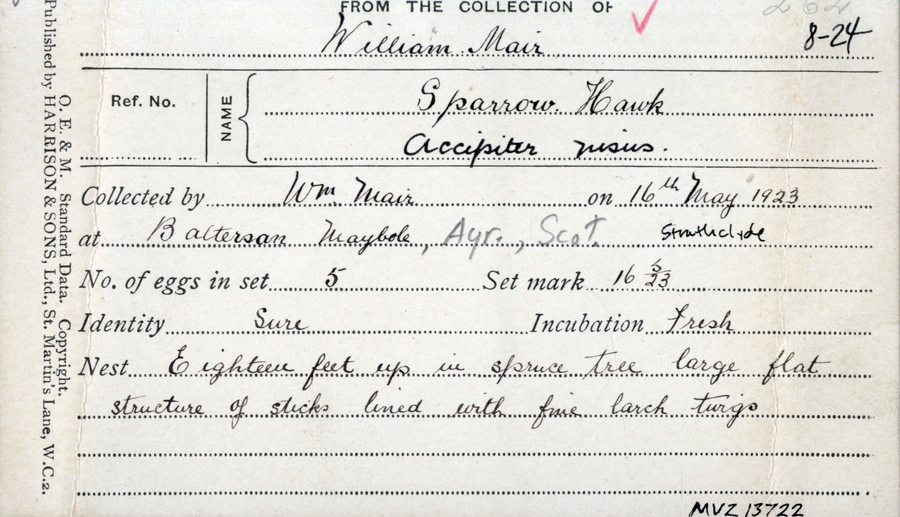 FROM THE COLLECTION OF
William Mair 8-24
Ref. No. NAME Sparrow. Hawk
Accipiter nisus.
Collected by Wm Mair on 16th May 1923
at Balterson Maybole, Ayr., Scot. Strathclyde
No. of eggs in set 5 Set mark 16 5/23
Identity Sure Incubation Fresh
Nest Eighteen feet up in spruce tree large flat
structure of sticks lined with fine larch twigs
MVZ 13722
O. E. & M. Standard Data. Copyright.
Published by HARRISON & SONS, Ltd., St. Martin's Lane, W.C.2.